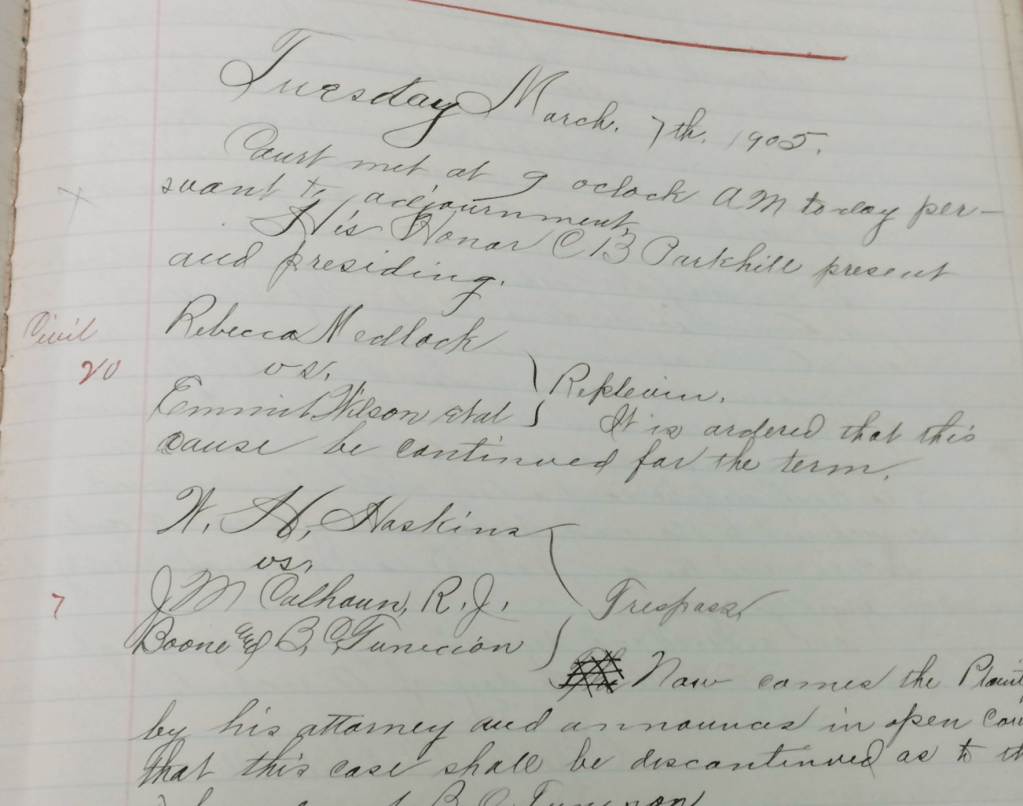 Tuesday March. 7th. 1905.
Court met at 9 oclock AM today per-
suant to adjournment,
His Honor C B Parkhill present
and presiding.
Civil
20
Rebecca Medlock
vs.
Emmit Wilson et al
Replevin.
It is ordered that this
cause be continued for the term.
7
W. H, Haskins
vs.
J M Calhoun, R. J.
Boone and B, C,
Trespass
Now comes the Plaint
by his attorney and announces in open Cou
that this case shall be discontinued as to th